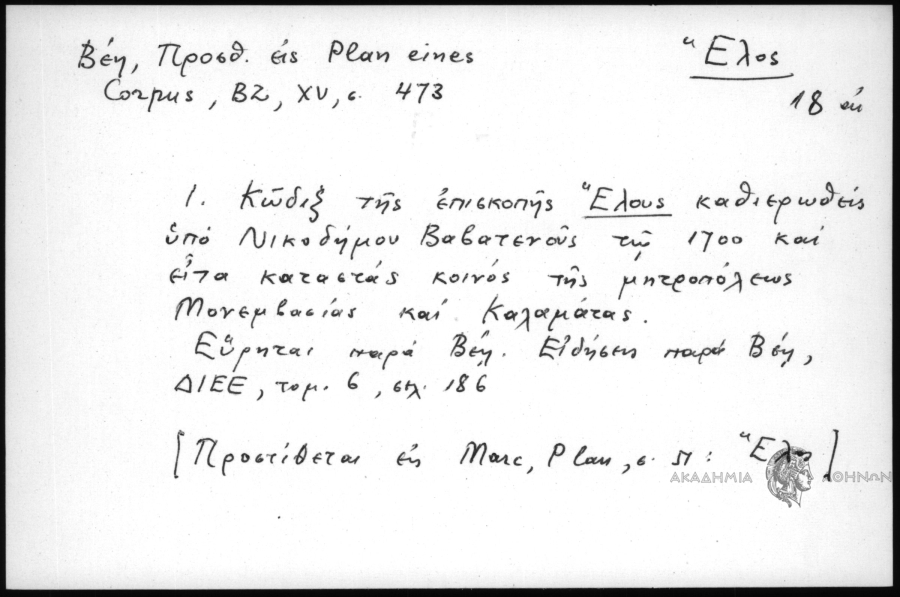 Βέη, Προσθ. εἰς Plan eines
Corpus, BZ, XV, σ. 473
Ἕλος
18
1. Κῶδιξ τῆς ἐπισκοπῆς Ἕλους καθιερωθείς
ὑπό Νικοδήμου Βαβατενοῦς τῷ 1700 καί
εἶτα καταστάς κοινός τῆς μητροπόλεως
Μονεμβασίας καί Καλαμάτας.
Εὕρηται παρά Βέῃ. Εἰδήσεις παρά Βέῃ,
ΔΙΕΕ, τομ. 6, σελ. 186
[Προστίθεται εἰς Marc, Plan, σ. : Ἕλος]
ΑΚΑΔΗΜΙΑ ΑΘΗΝΩΝ